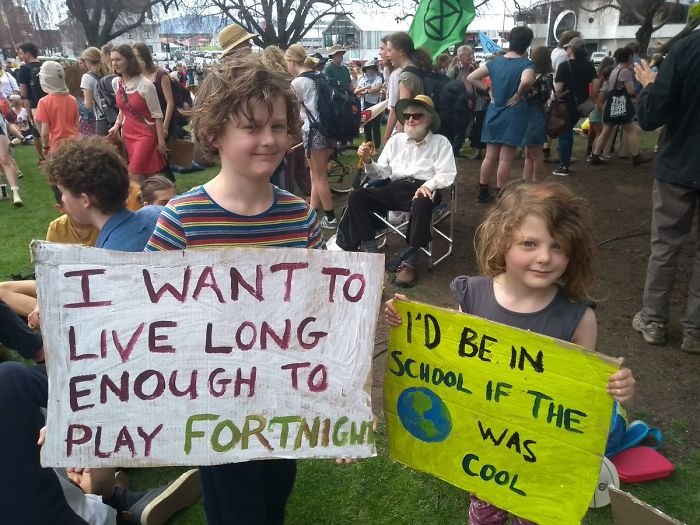 I WANT TO
LIVE LONG
ENOUGH TO
PLAY FORTNIGH
I'D BE IN
SCHOOL IF THE
WAS
COOL